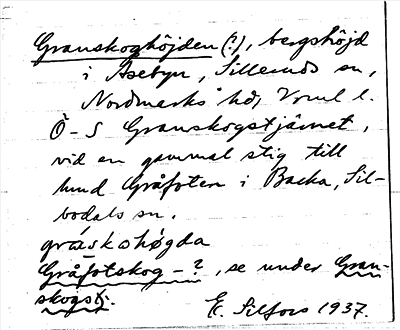 Granskoghöjden (?), bergshöjd
i Åsebyn, Sillerud sn,
Nordmarks hd, Vrml l.
Ö-S Granskogstjärnet,
vid en gammal stig till
lund Gråfoten i Backa, Sil-
bodals sn.
gråskohøgda
Gråfotskog - ?, se under Gran-
skogs
E. Silfors 1937.